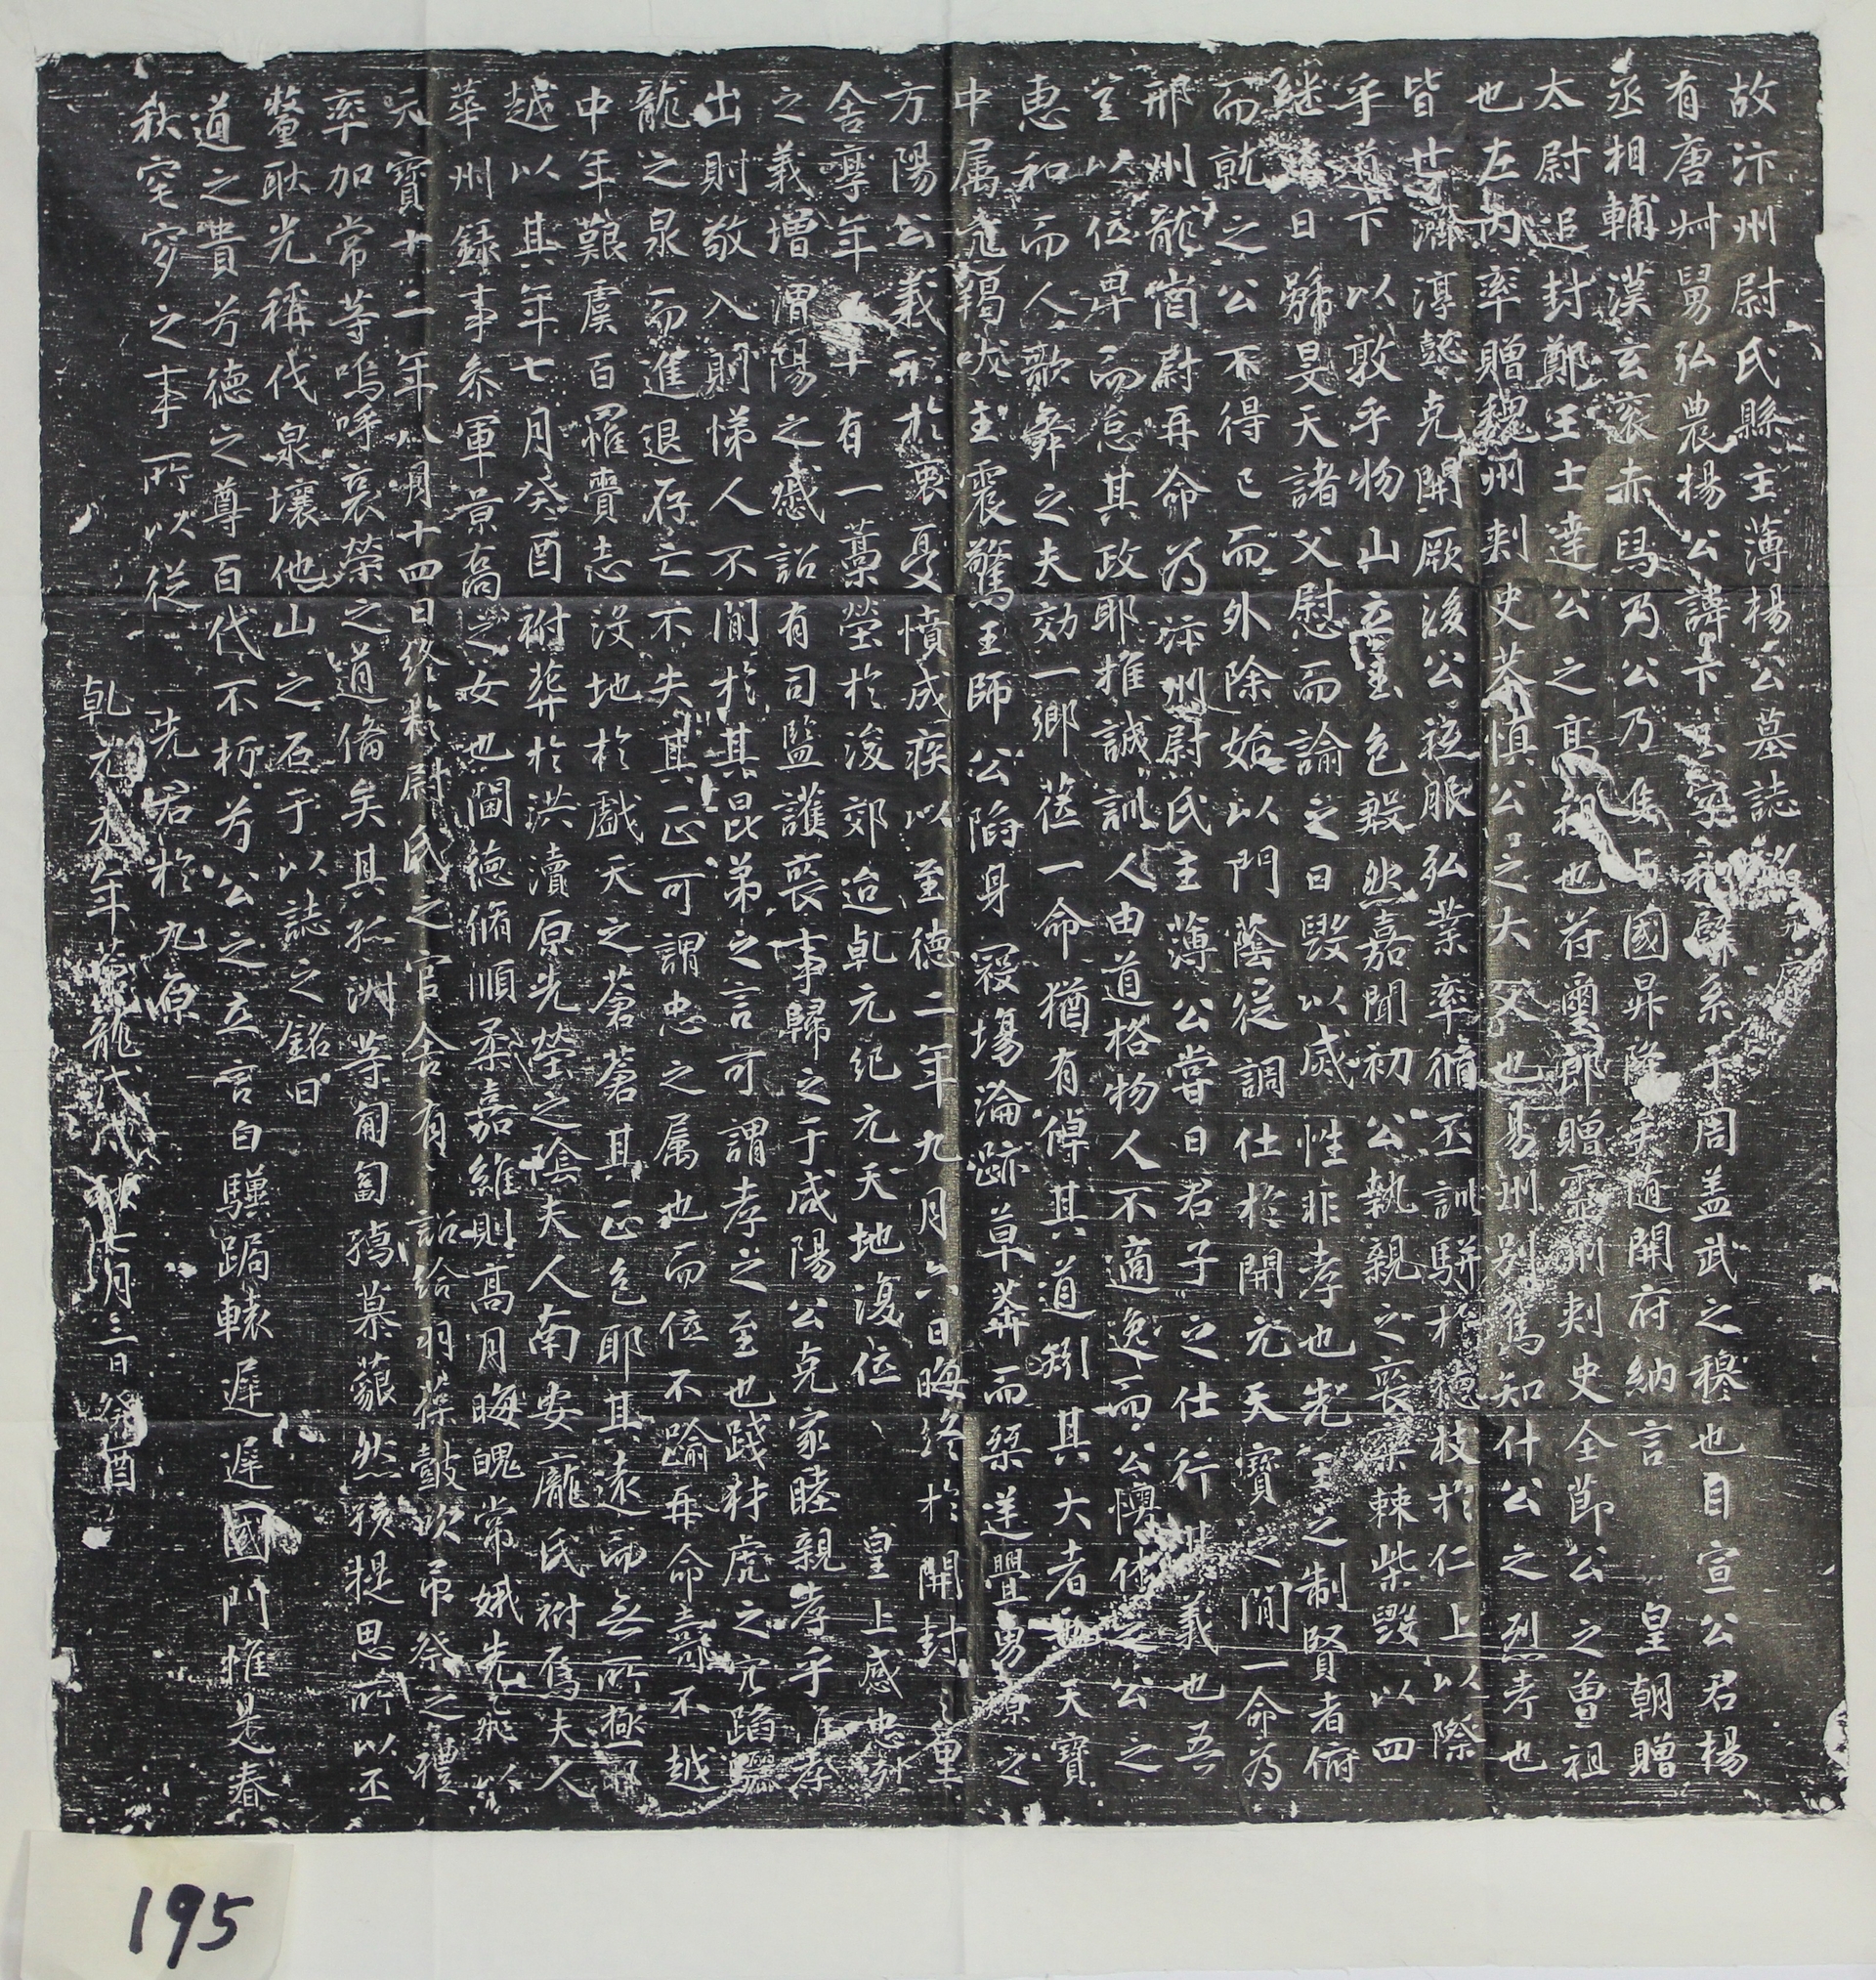 故汴州尉氏縣主薄楊公墓誌
有唐州舅弘農楊公諱卞字系于周盖武之穆也自宣公君楊
丞相輔漢玄衮赤舄乃公乃侯与國昇降道開府納言皇朝贈
太尉追封鄭王士達公之高祖也符璽郎贈州刾史全節公之曾祖
也左内率贈魏州刾史慎公之大父也易州別駕知什公之烈考也
皆世濟淳懿克開厥後公祗服弘業率脩丕訓駢於枝於仁上以際
乎下以敦乎物山立玉色毅然嘉聞初公執親之喪欒棘柴毀以四
継日號旻天諸父慰而諭之曰毀以戚性非孝也先王之制賢者俯
而就之公不得已而外除始以門蔭從調仕於開元天寶之間一命為
邢州龍崗尉再命為汴州尉氏主薄公嘗曰君子之仕行其義也吾
豈以位卑而怠其政耶推誠訓人由道格物人不適逸而公博休之公之
惠和而人歌舞之夫効一鄉莅一命猶有倬其道矧其大者天寶
中属羯吠主震驚王師公陷身寇塲淪跡草莽而梟送舋勇之
方陽公義形於衷憂憤成疾以至德二年九月六日晦終於開封之里
舍享年五十有一藁塋於浚郊迨乹元紀元天地復位皇上感忠引
之義增渭陽之慼詔有司監護喪事歸之于咸陽公克家睦親孝乎
出則敬入則悌人不間於其昆弟之言可謂孝之至也踐豺虎之穴蹈驪
龍之泉而進退存亡不失其正可謂忠之属也而位不踰再命壽不越
中年艱虞百罹賷志没地於戲天之蒼蒼其正色耶其遠而無所極耶
越以其年七月癸酉祔葬於洪瀆原先塋之隂夫人南安龐氏祔焉夫人
華州録事叅軍景高之女也閫德脩順柔嘉維則高月晦魄常娥先飛以
元寶十二年八月十四日終於尉氏之官舍有詔給羽葆鼓吹吊祭之禮
率加常等嗚呼哀榮之道俻矣其孤洲等匍匐孺慕藐然孩提思所以丕
釐耿光稱伐泉壤他山之石于以誌之銘曰
道之貴兮德之尊百代不朽兮公之立言白驥跼轅遲遲國門惟是春
秋窀穸之事所以從先君於九原
乹元元年蒼龍戊戌秋七月三日癸酉
195